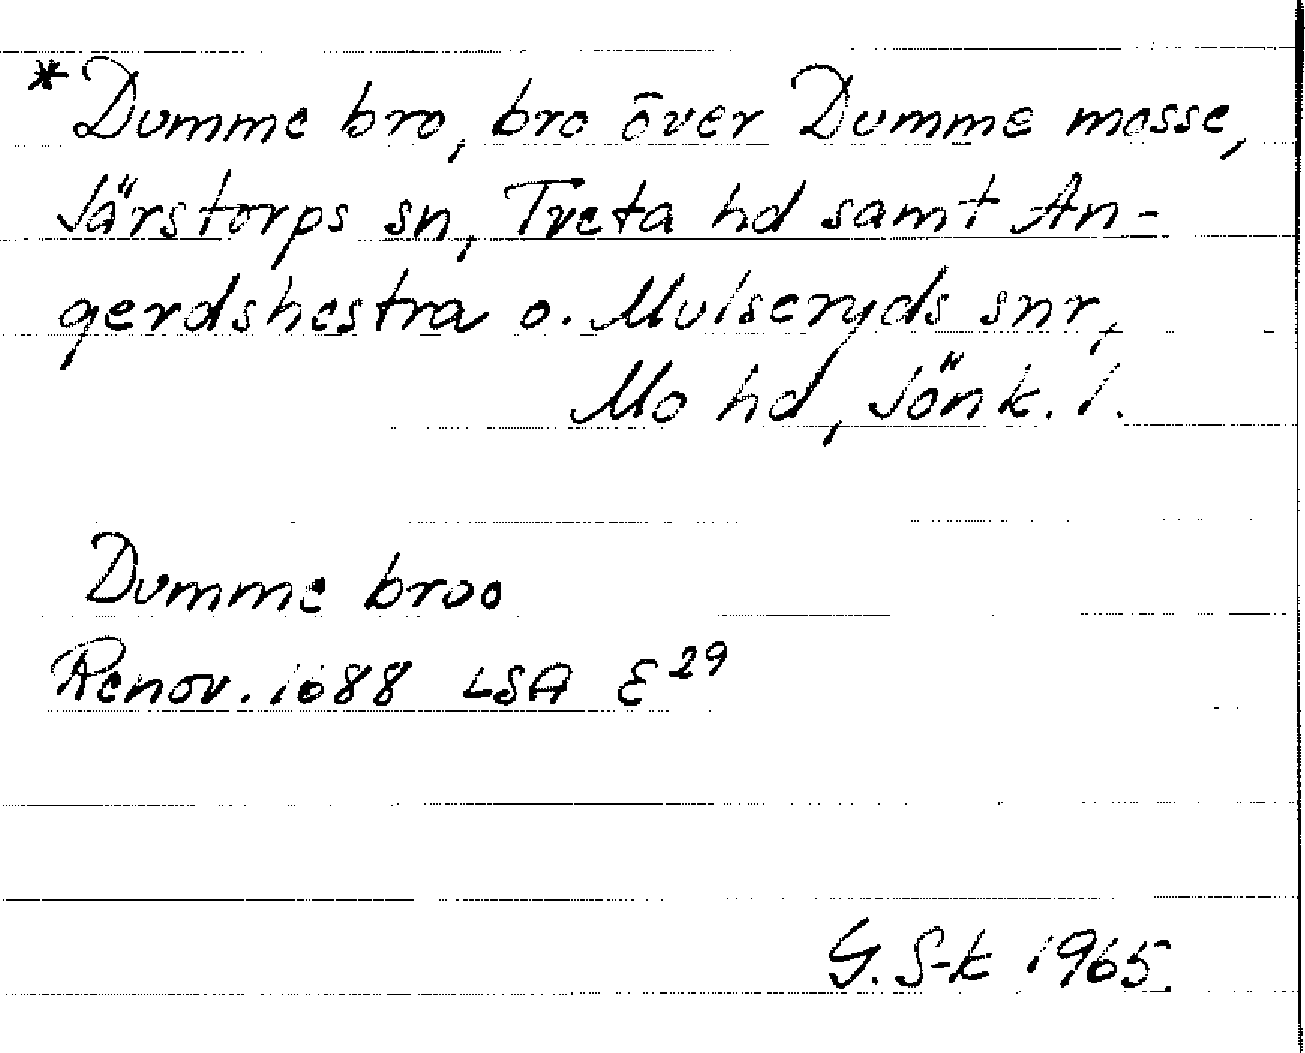 *Dumme bro, bro över Dumme mosse,
Järstorps sn, Tveta hd samt An-
gerdshestra o. Mulseryds snr,
Mo hd, Jönk. l.
Dumme broo
Renov. 1688 LSA E²⁹
G. S-k 1965.